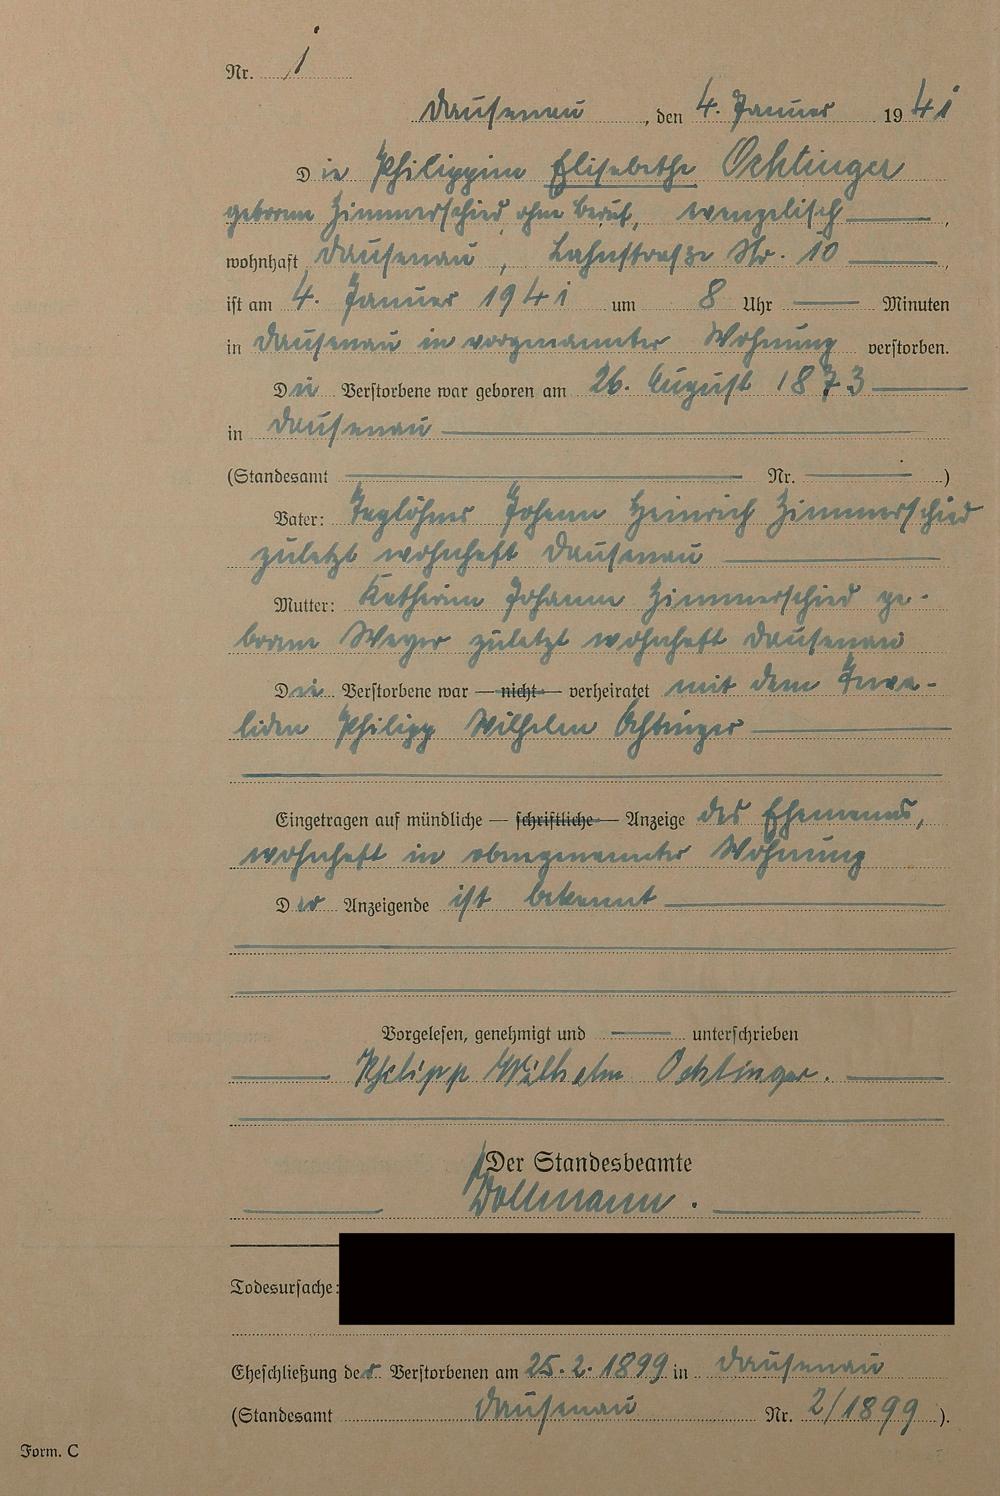 Nr. 1
Dausenau, den 4. Januar 1941
Die Philippine Elisabethe Ochtinger
geborene Zimmerschied, ohne Beruf, evangelisch,
wohnhaft Dausenau, Lahnstraße Nr. 10,
ist am 4. Januar 1941 um 8 Uhr Minuten
in Dausenau in vorgenannter Wohnung verstorben.
Die Verstorbene war geboren am 26. August 1873
in Dausenau
(Standesamt Nr. )
Vater: Taglöhner Johann Heinrich Zimmerschied
zuletzt wohnhaft Dausenau
Mutter: Katharina Johanna Zimmerschied ge-
borene Weyer zuletzt wohnhaft Dausenau
Die Verstorbene war — nicht — verheiratet mit dem Inva-
liden Philipp Wilhelm Ochtinger
Eingetragen auf mündliche — schriftliche — Anzeige des Ehemanns,
wohnhaft in obengenannter Wohnung
Der Anzeigende ist bekannt
Vorgelesen, genehmigt und unterschrieben
Philipp Wilhelm Ochtinger.
Der Standesbeamte
Dollmann.
Todesursache:
Eheschließung der Verstorbenen am 25.2.1899 in Dausenau
(Standesamt Dausenau Nr. 2/1899).
Form. C